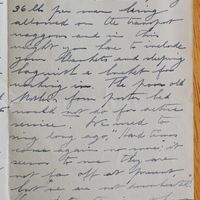 36 lb per man being
allowed on the transport
waggons and in this
weight you have to include
your blankets and sleeping
bag with a bucket for
washing in. The poor old
from
would not do for active
service. We used to
sing long ago, "Hard times
come again no more" it
seems to me they are
not far off at present,
but we are not downhearted.